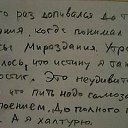 го раз допивался до т
ния, когда понимал
сы Мироздания. Утро
лось, что истину я так
остиг. Это неудивите
что пить надо самоза
оением, до полного
А я халтурю.